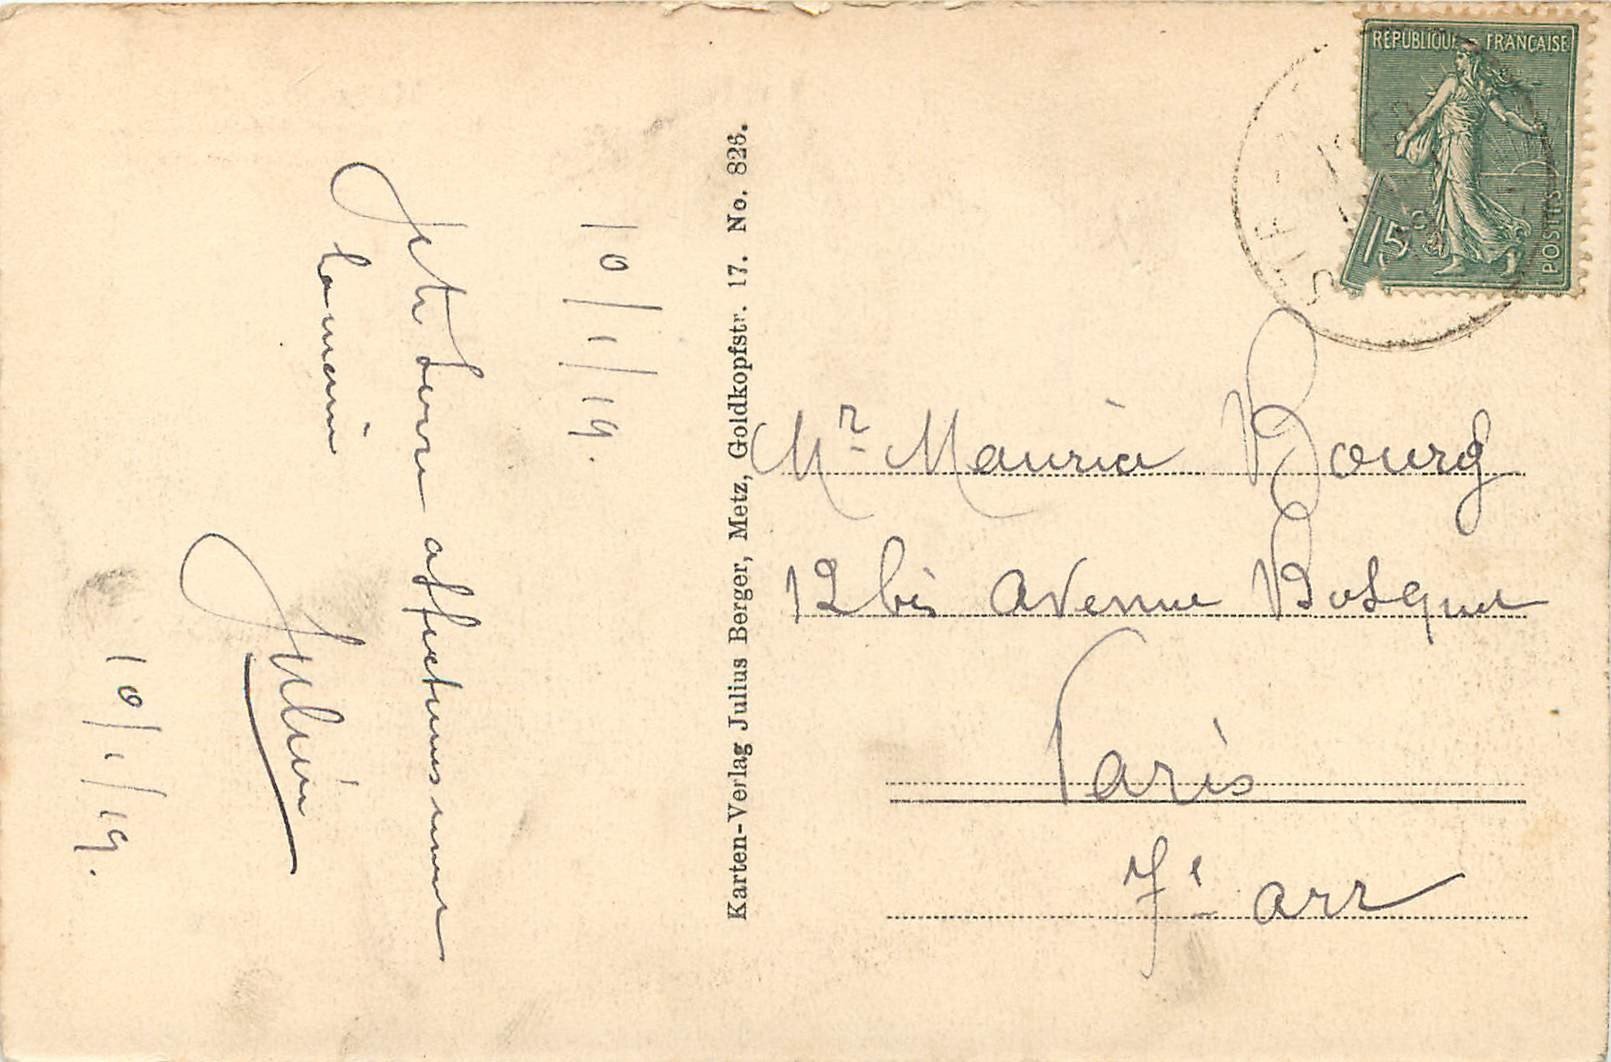 10/1/19.
Je te serre affectueusement
la main
Julien
10/1/19.
Karten-Verlag Julius Berger, Metz, Goldkopfstr. 17. No. 826.
REPUBLIQUE FRANÇAISE
15c
POSTES
Mr Maurice Bourg
12 bis avenue Bosquet
Paris
7e arr